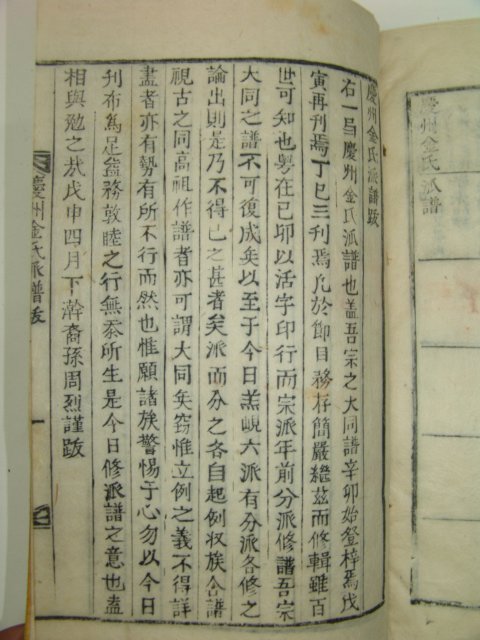 慶州金氏派譜
慶州金氏派譜跋
右一局慶州金氏派譜也盖吾宗之大同譜辛卯始登梓焉戊
寅再刊焉丁巳三刊焉凡於節目務存簡嚴繼玆而修輯雖百
世可知也粤在己卯以活字印行而宗派年前分派修譜吾宗
大同之譜不可復成矣以至于今日羔峴六派有分派各修之
論出則是乃不得已之甚者矣派而分之各自起例収族合譜
視古之同高祖作譜者亦可謂大同矣竊惟立例之義不得詳
盡者亦有勢有所不行而然也惟願諸族警惕于心勿以今日
刊布為足益務敦睦之行無忝所生是今日修派譜之意也盍
相與勉之㢤戊申四月下澣裔孫周烈謹跋
慶州金氏派譜跋
一